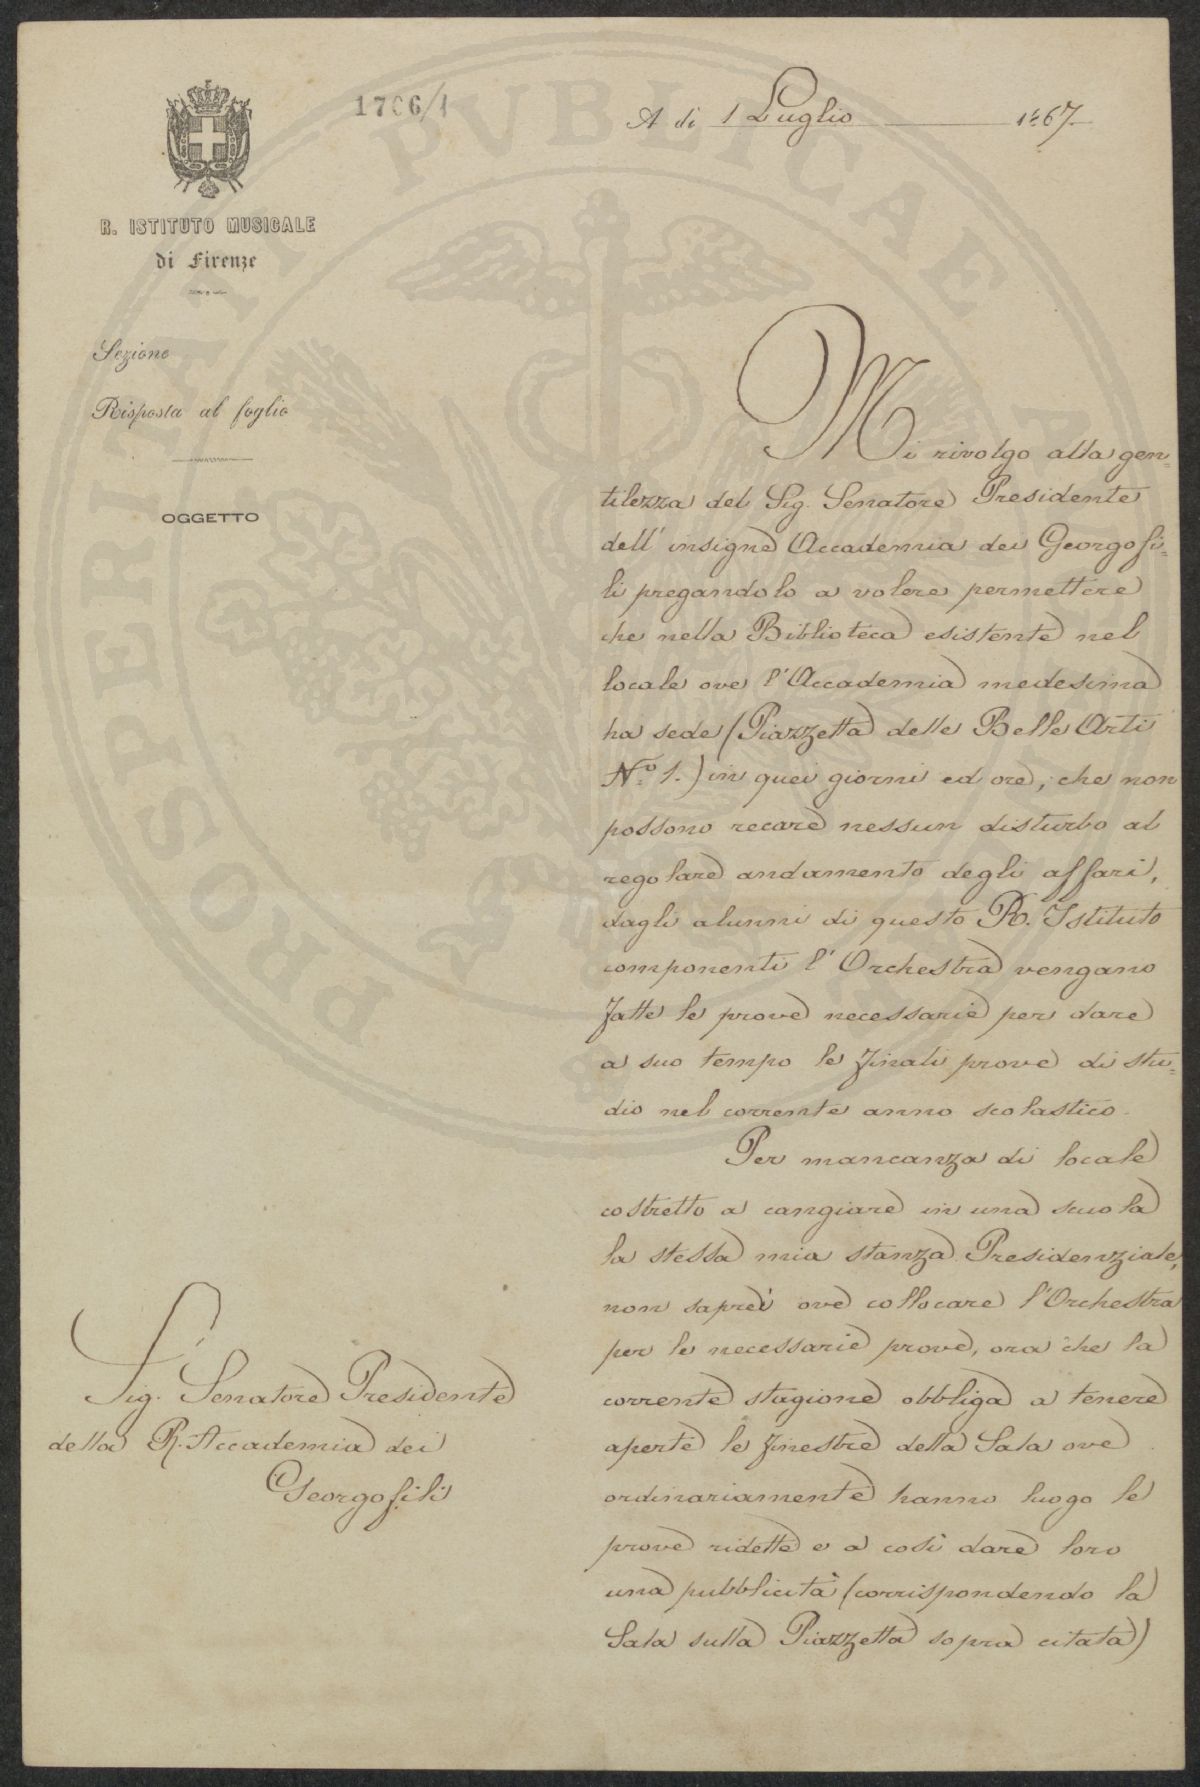 1706/1
A dì 1 Luglio 1867.
R. ISTITUTO MUSICALE
di Firenze
Sezione
Risposta al foglio
OGGETTO
Mi rivolgo alla gen=
tilezza del Sig. Senatore Presidente
dell' insigne Accademia dei Georgofi=
li pregandolo a volere permettere
che nella Biblioteca esistente nel
locale ove l'Accademia medesima
ha sede (Piazzetta delle Belle Arti
N.º 1.) in quei giorni ed ore, che non
possono recare nessun disturbo al
regolare andamento degli affari,
dagli alunni di questo R. Istituto
componenti l'Orchestra vengano
fatte le prove necessarie per dare
a suo tempo le finali prove di stu=
dio nel corrente anno scolastico.
Per mancanza di locale
costretto a cangiare in una scuola
la stessa mia stanza Presidenziale,
non saprei ove collocare l'Orchestra
per le necessarie prove, ora che la
corrente stagione obbliga a tenere
aperte le finestre della Sala ove
ordinariamente hanno luogo le
prove ridette e a così dare loro
una pubblicità (corrispondendo la
Sala sulla Piazzetta sopra citata)
Sig. Senatore Presidente
della R. Accademia dei
Georgofili
PROSPERITATI PUBLICAE